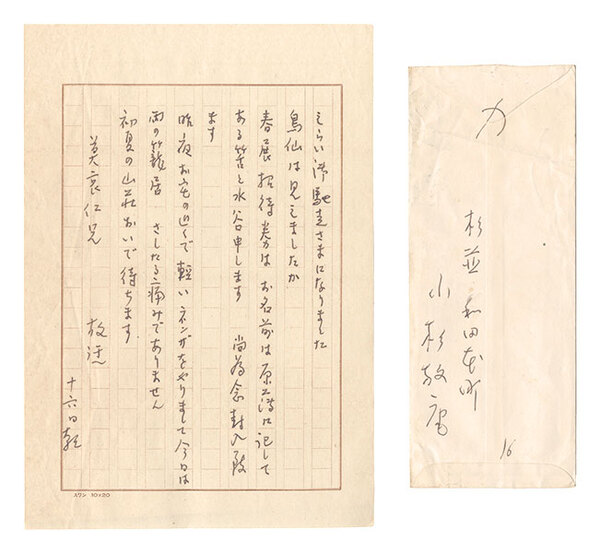 えらい御馳走さまになりました
鳥仙は見えましたか
春展招待券はお名前は原簿に記して
ある筈と水谷申します 尚為念封入致
ます
昨夜お宅の近くで軽いネンザをやりまして今日は
雨の籠居 さしたる痛みでありません
初夏の山荘おいで待ちます
莫哀仁兄 放庵
十六日朝
スワン 10×20
杉並 和田本町
小杉放庵
16